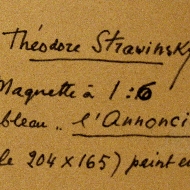 Théodore Strawinsky
Maquette à 1:6
bleau.. l'Annonci
le 204 x 165) peint en